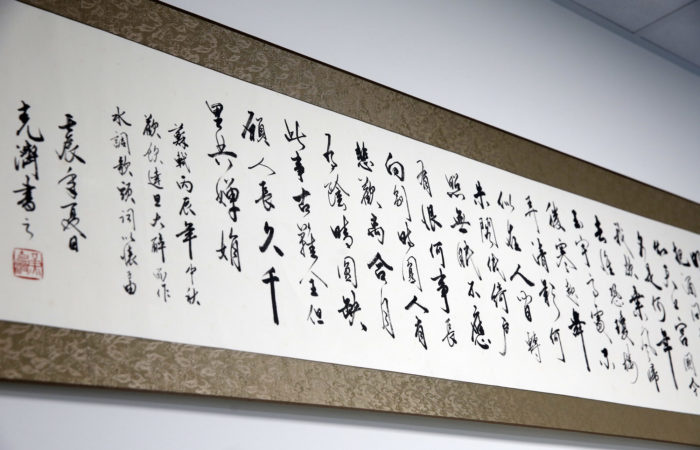 夕是何年
我欲乘風歸
去惟恐瓊樓
玉宇高處不
勝寒起舞
弄清影何
似在人間轉
朱閣低綺戶
照無眠不應
有恨何事長
向別時圓人有
悲歡離合月
有陰晴圓缺
此事古難全但
願人長久千
里共嬋娟
蘇軾丙辰年中秋
歡飲達旦大醉而作
水調歌頭詞以懷子由
壬辰年夏日
克濟書之